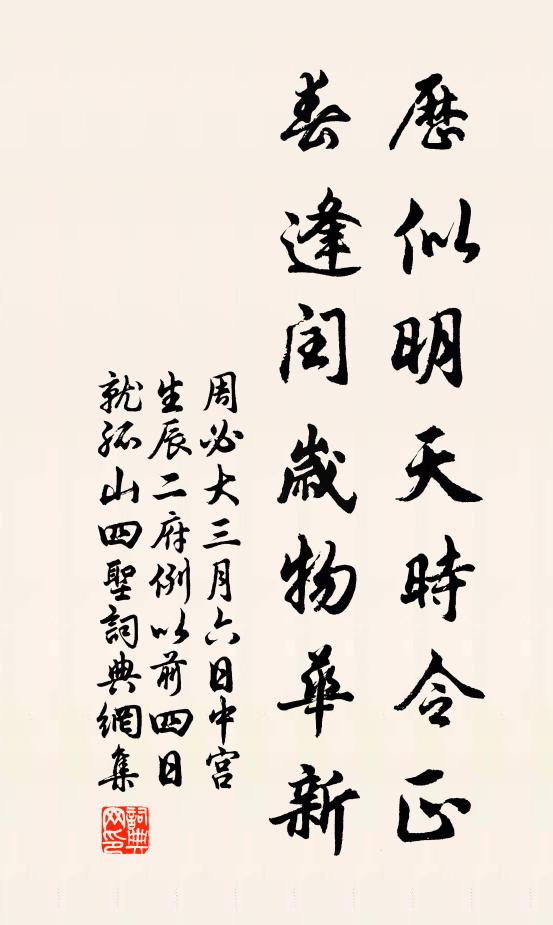 歷似明天時令正
春逢閏歲物華新
周必大三月六日中宮
生辰二府例以前四日
就孤山四聖詞典網集
詞典网印